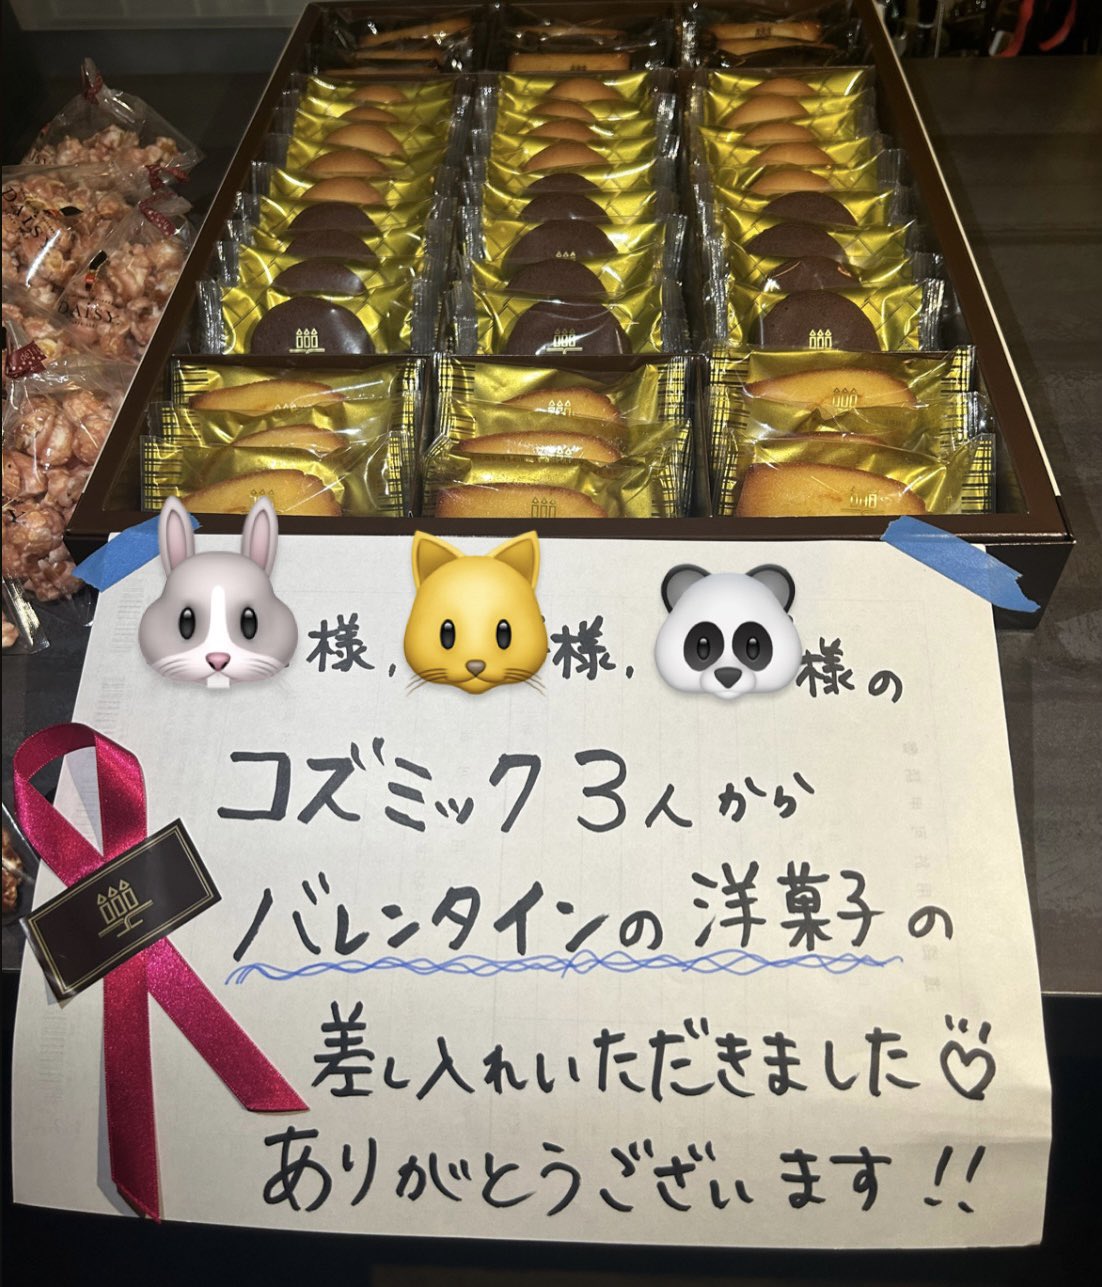 様, 様, 様の
コズミック3人から
バレンタインの洋菓子の
差し入れいただきました♡
ありがとうございます!!
DAISY
DAISY